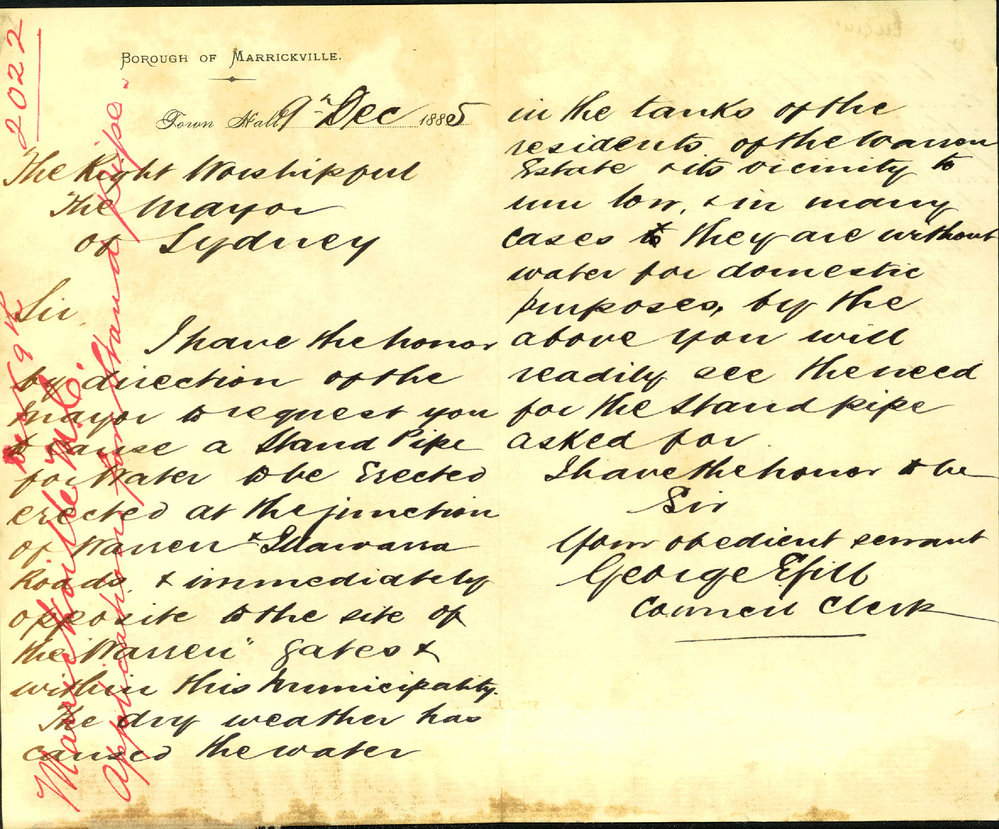 2022
BOROUGH OF MARRICKVILLE.
Town Hall 9th Dec 1885
The Right Worshipful
The Mayor
of Sydney
Sir,
I have the honor
by direction of the
Mayor to request you
to cause a Stand Pipe
for Water to be Erected
erected at the junction
of Warren & Illawarra
Roads & immediately
opposite to the site of
the "Warren" gates &
within this Municipality.
The dry weather has
caused the water
in the tanks of the
residents of the Warren
Estate & its vicinity to
run low, & in many
cases they are without
water for domestic
purposes, by the
above you will
readily see the need
for the Stand pipe
asked for.
I have the honor to be
Sir
Your obedient servant
George
Council Clerk
Marrickville M.C.
Application for Stand pipe.